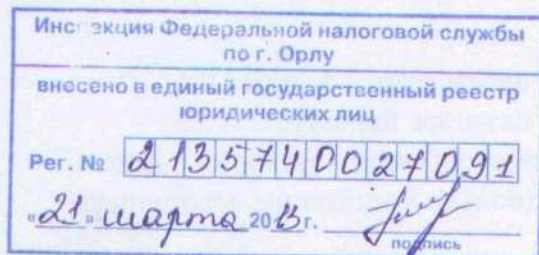 Инспекция Федеральной налоговой службы
по г. Орлу
внесено в единый государственный реестр
юридических лиц
Рег. № 2135740027091
«21» марта 2013 г.
подпись